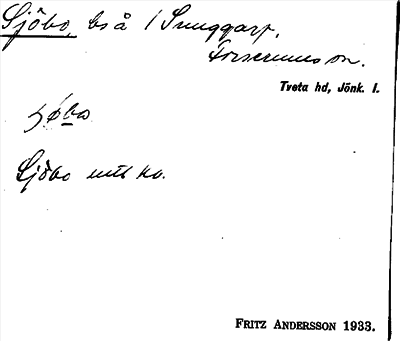 Sjöbo, bs å 1 Smuggarp,
Forserums sn.
Tveta hd, Jönk. l.
Sjöbo mtl kv.
FRITZ ANDERSSON 1933.